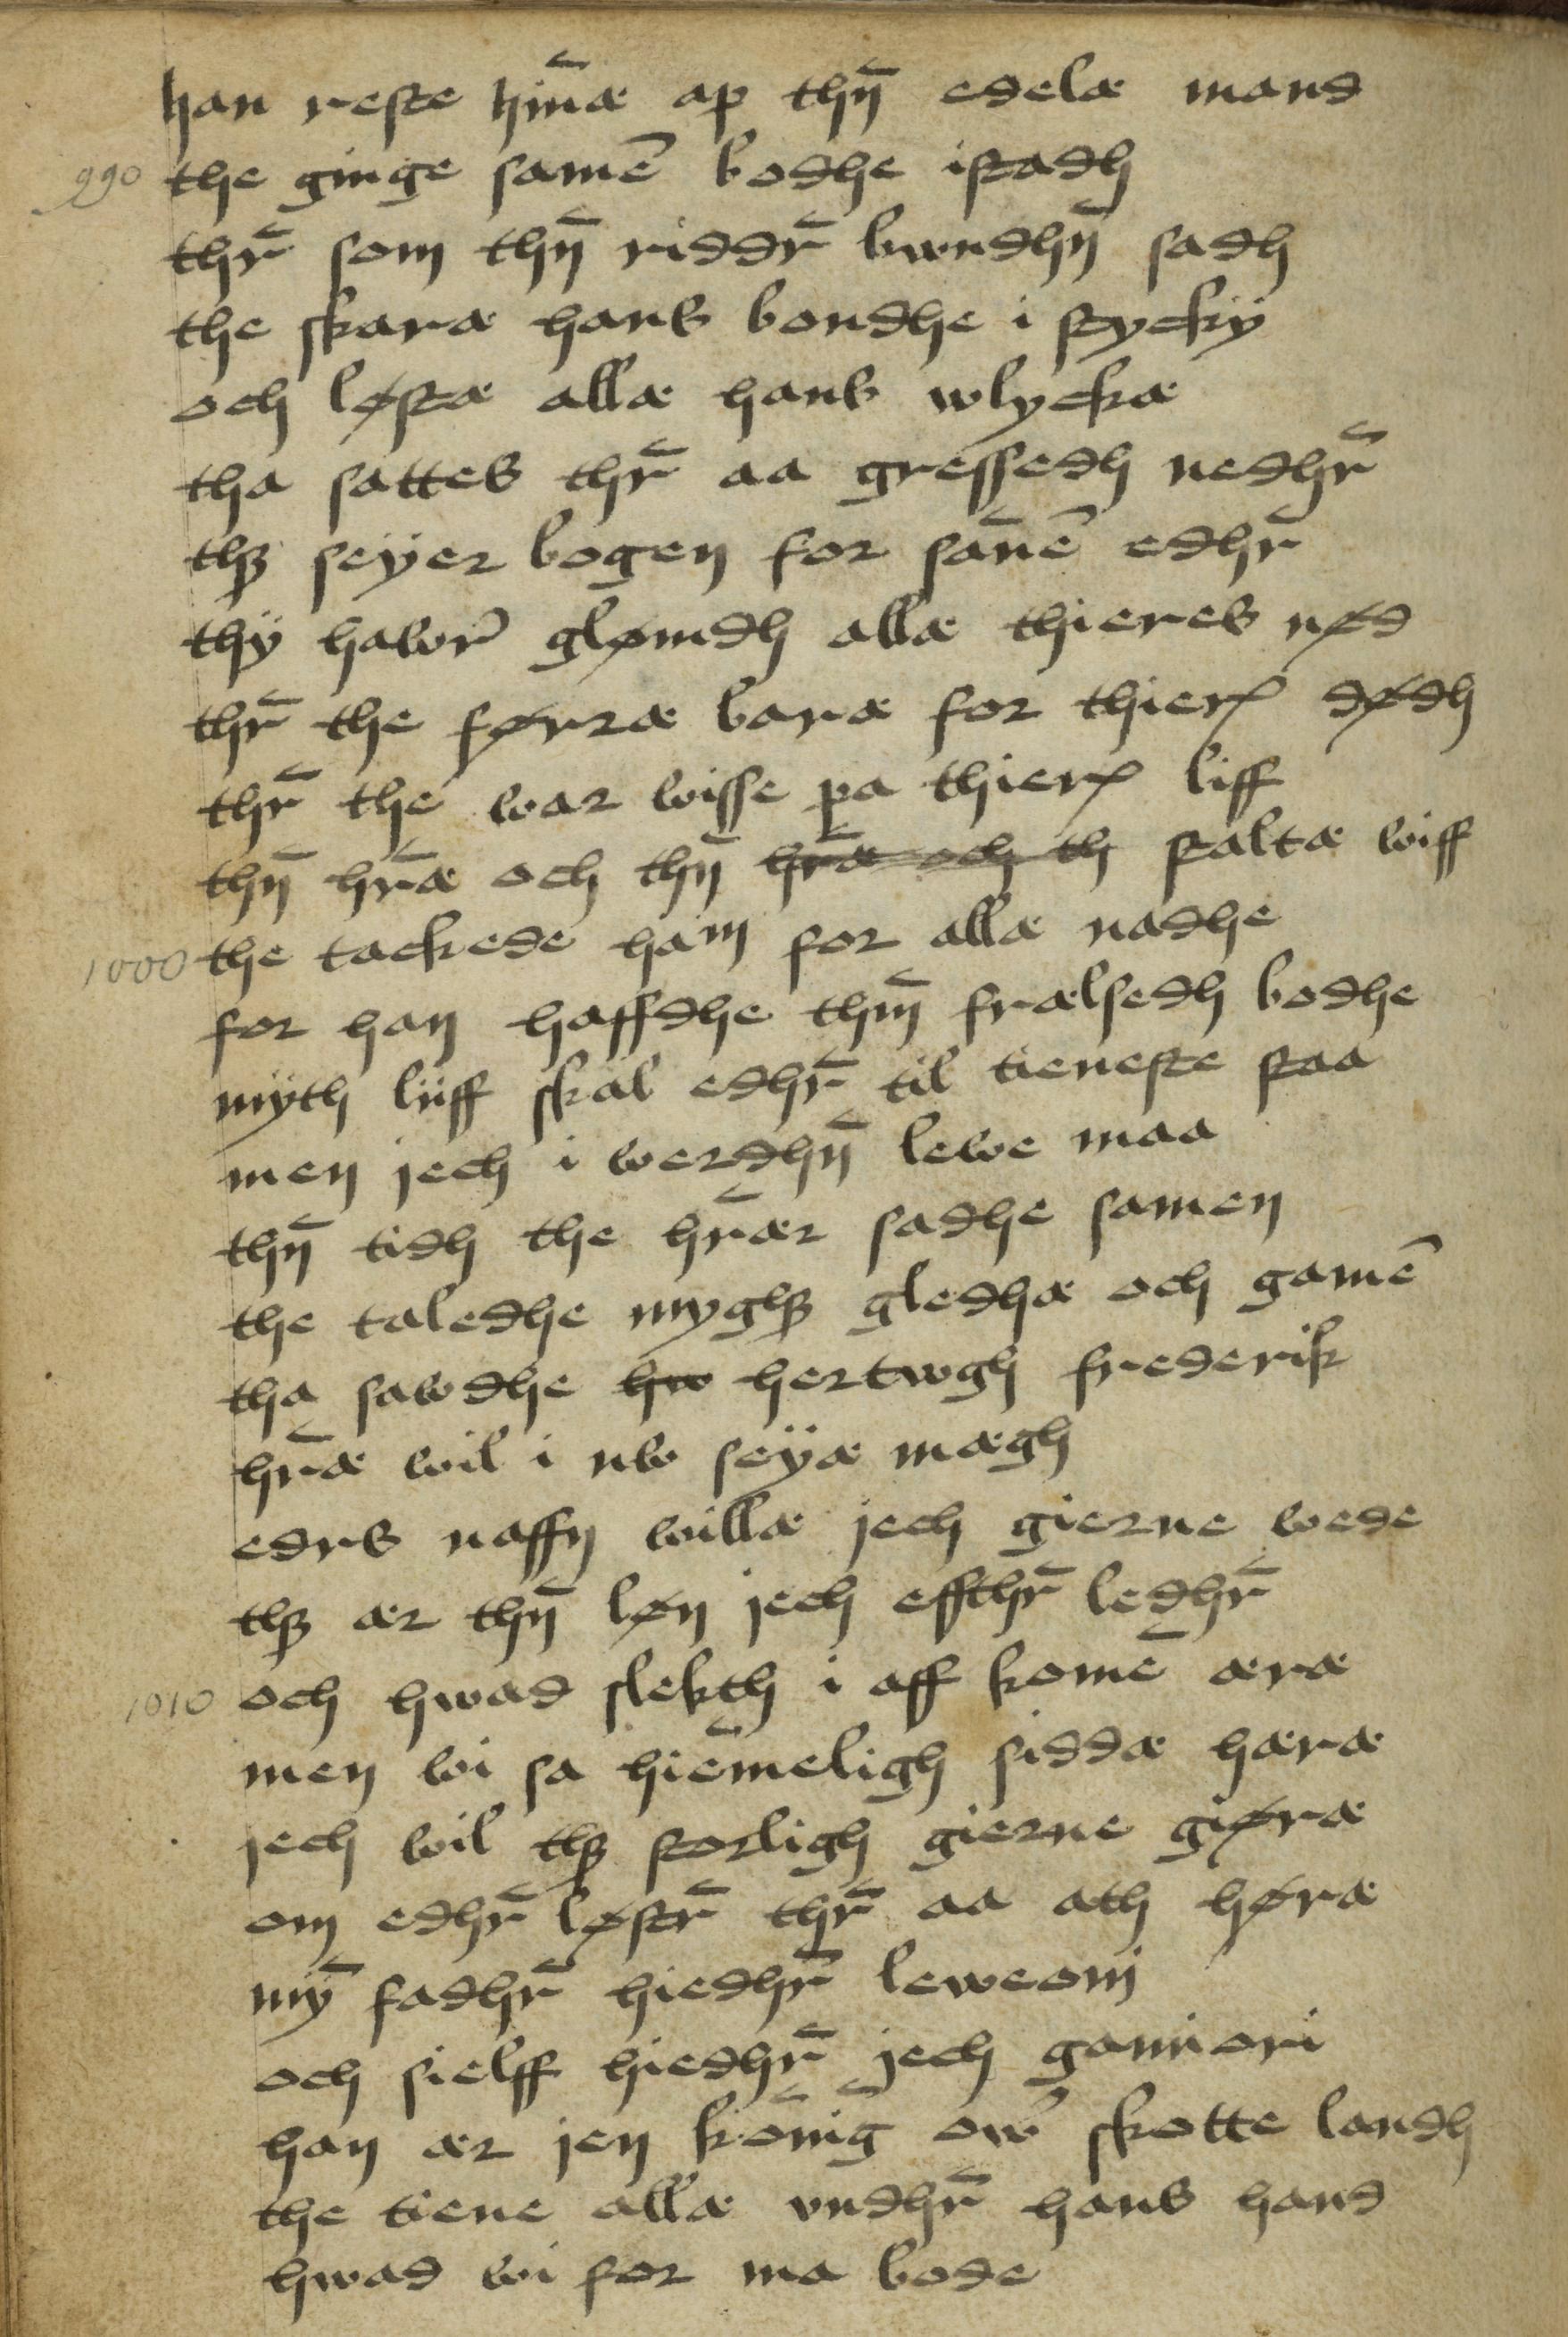 han reste hin̄æ ap thn̄ edelæ mand
990 the ginge samē bodhe istadh
thr̄ som thn̄ riddr̄ bwndhn̄ sadh
the skaræ hans bondhe i stycky
och løstæ allæ hans wlyckæ
tha sattes thr̄ aa gressedh nedhr̄
thꝫ seyer bogen for san̄ē edhr̄
thy hawer̄ glømdh allæ thieres nød
thr̄ the førræ baræ for thierꝭ dødh
thr̄ the war wisse pa thierꝭ liff
thn̄ hr̄æ och thn̄ hr̄æ och th staltæ wiff
1000 the tackede ham for allæ nadhe
for han haffdhe thm̄ frælsedh bodhe
myth liiff skal edhr̄ til tieneste staa
men jech i werdhn̄ lewe maa
thn̄ tidh the hr̄ær sadhe samen
the taledhe myghꝫ gledhæ och gamē
tha sawdhe hw hertwgh frederik
hr̄æ wil i nw seyæ mægh
edrs naffn willæ jech gierne wede
thꝫ ær thn̄ løn jech effthr̄ ledhr̄
1010 och hwad slekth i aff komē æræ
men wi sa hiēmeligh siddæ hæræ
jech wil thꝫ storligh gierne giøræ
om edhr̄ løstr̄ thr̄ aa ath høræ
mȳ fadhr̄ hiedhr̄ leweoni
och sielff hiedhr̄ jech gamiori
han ær jen kōniḡ ow̄ skotte landh
the tiene allæ vndhr̄ hans hand
hwad wi for ma bode